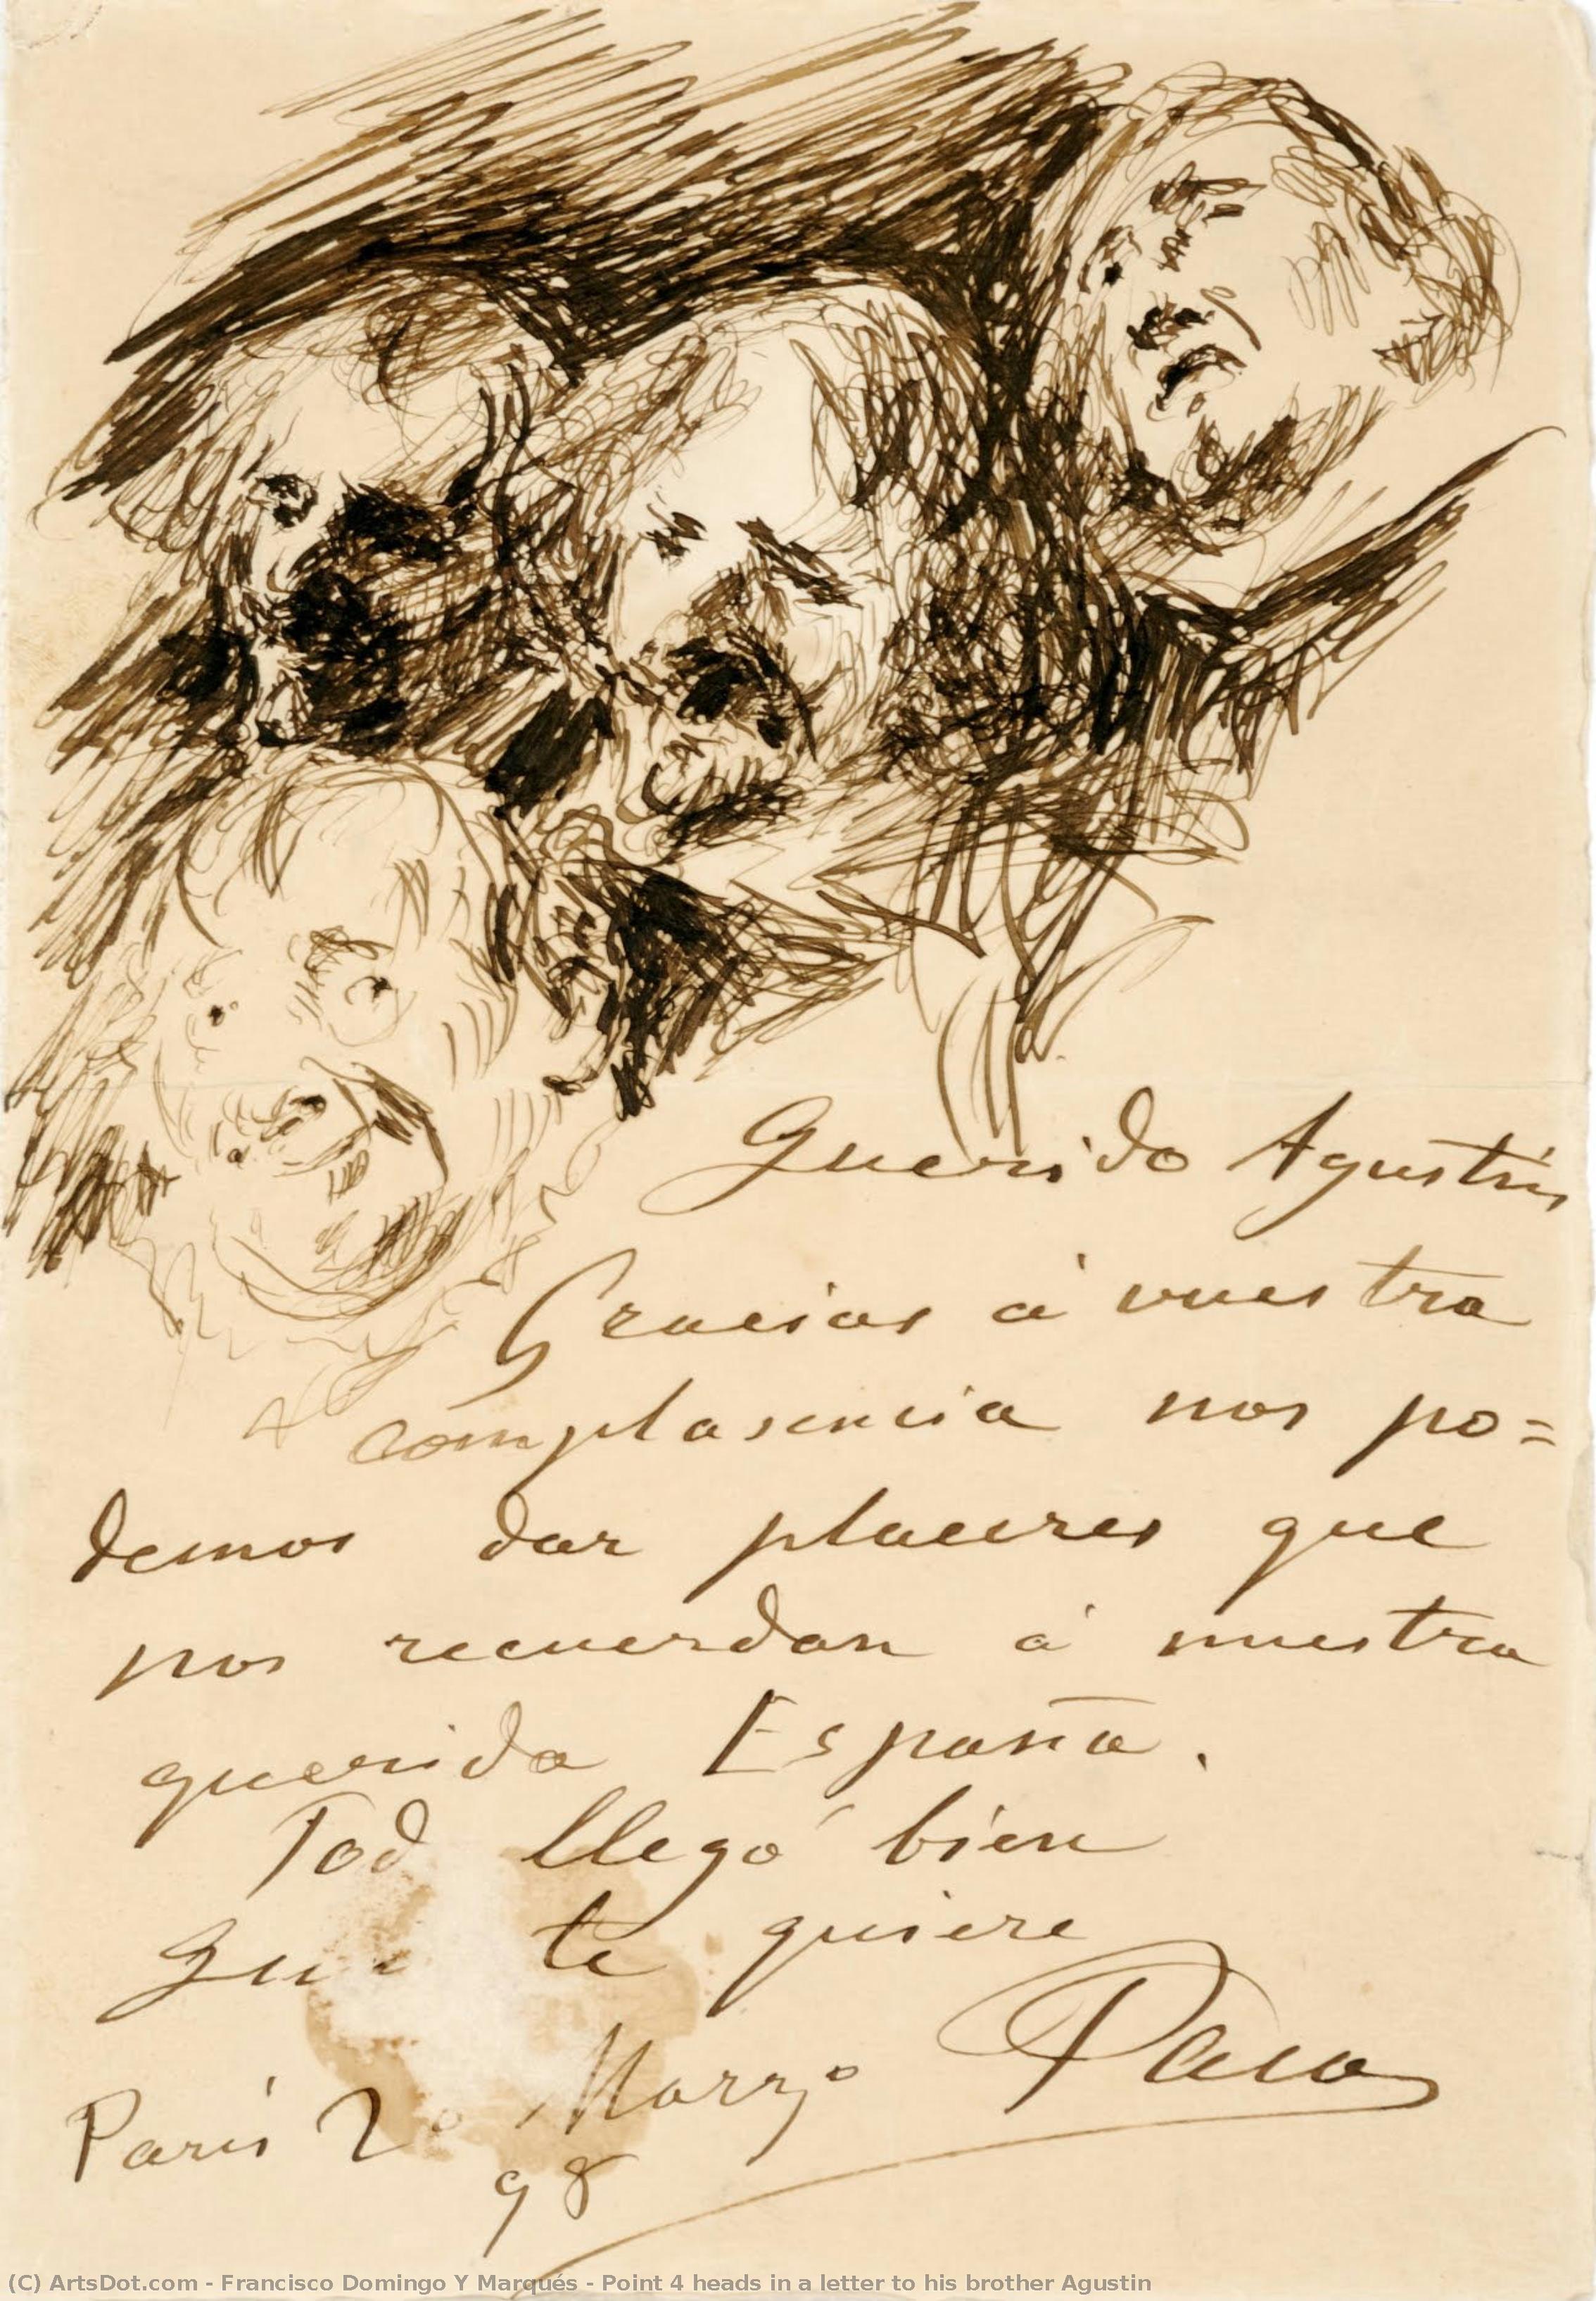 Querido Agustin
Gracias á vuestra
complasencia nos po=
demos dar placeres que
nos recuerdan á nuestra
querida España.
Tod llegó bien
te quiere
Paco
Paris Marzo
98
(C) ArtsDot.com - Francisco Domingo Y Marqués - Point 4 heads in a letter to his brother Agustin